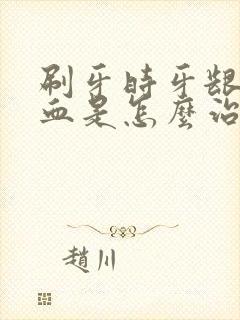 刷牙時牙龈
血是怎麼治
趙川